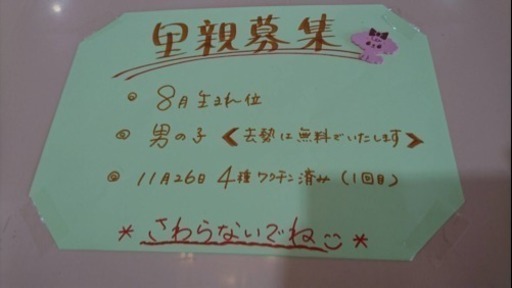 里親募集
◎ 8月生まれ位
◎ 男の子 《去勢は無料でいたします》
◎ 11月26日 4種ワクチン済み (1回目)
* さわらないでね *